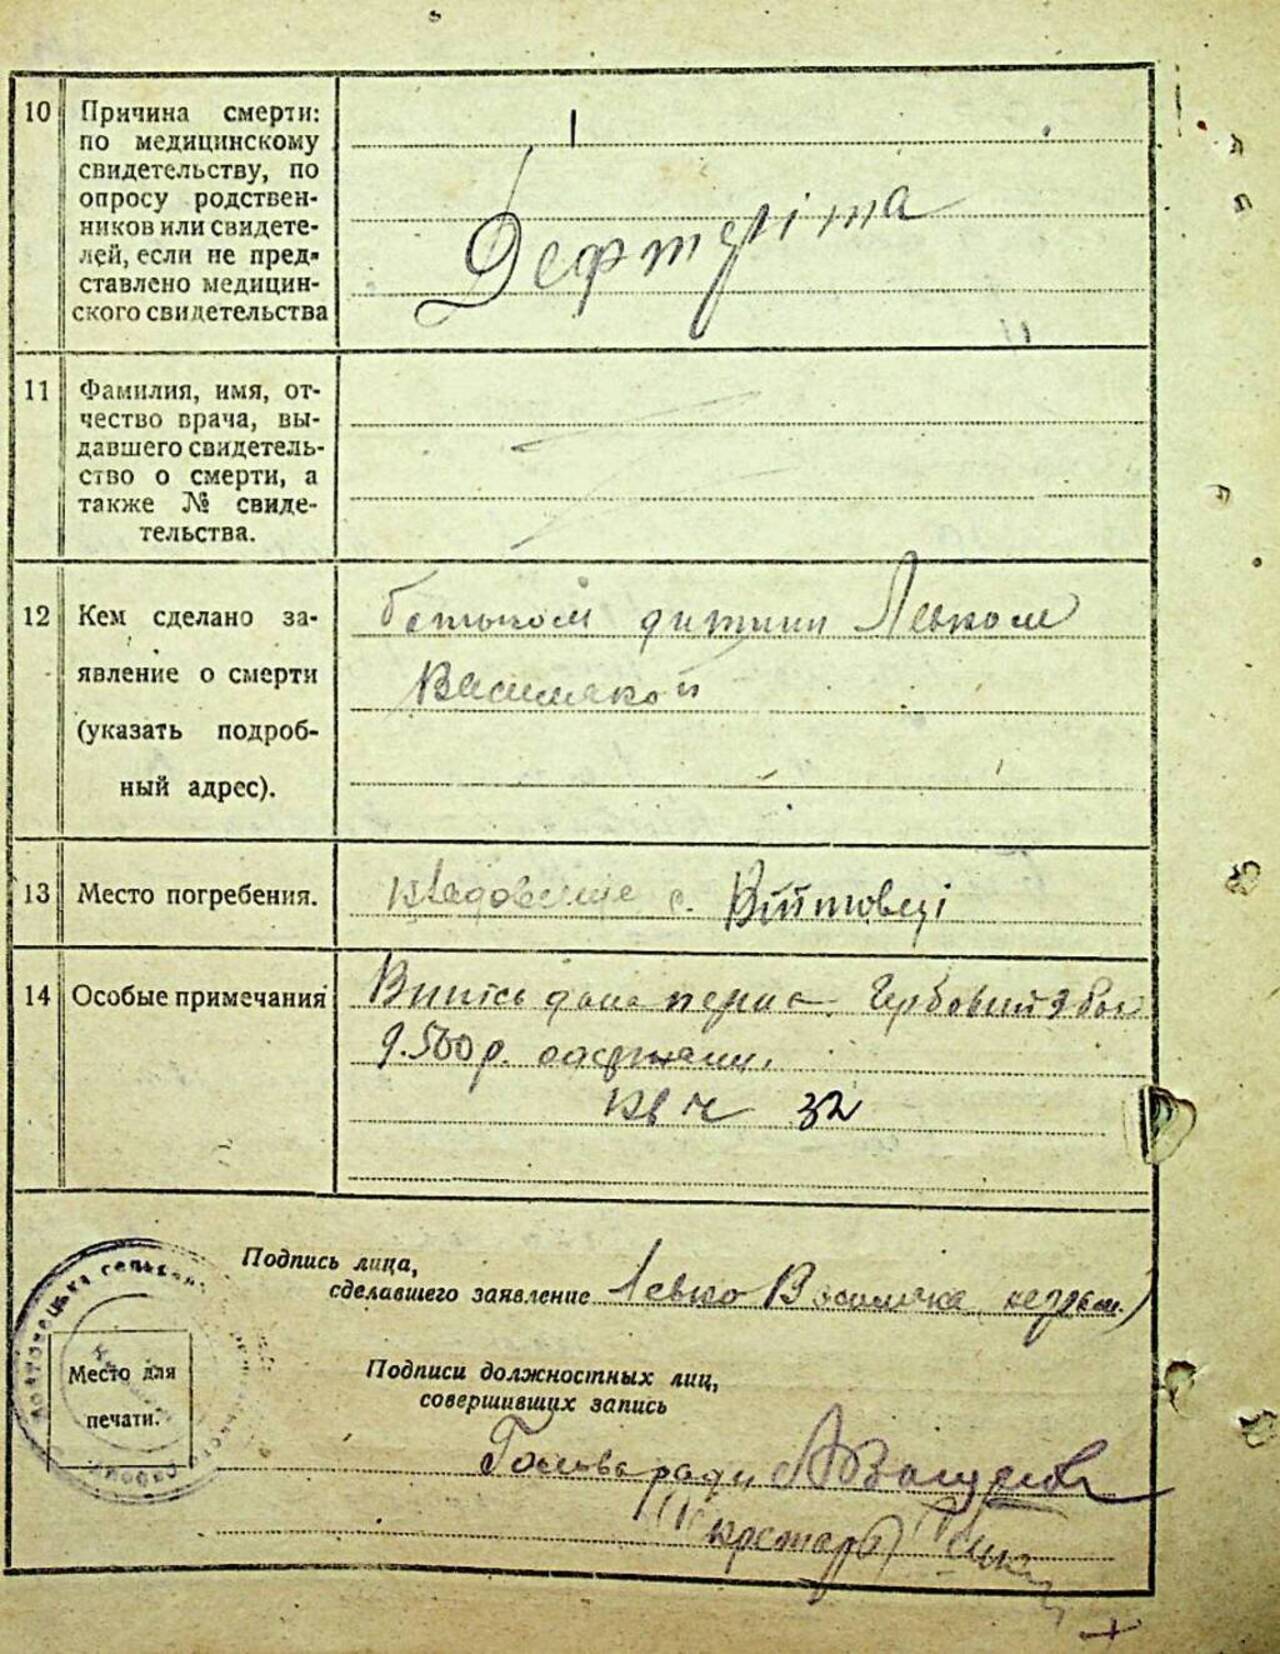 10 Причина смерти:
по медицинскому
свидетельству, по
опросу родствен-
ников или свидете-
лей, если не пред-
ставлено медицин-
ского свидетельства
Дефтеріта
11 Фамилия, имя, от-
чество врача, вы-
давшего свидетель-
ство о смерти, а
также № свиде-
тельства.
12 Кем сделано за-
явление о смерти
(указать подроб-
ный адрес).
батьком дитини Левком
13 Место погребения.
кладовище с. Війтовеці
14 Особые примечания
дана Гербовий збор
9.500р. одержани.
32
Подпись лица,
сделавшего заявление Левко
Место для
печати.
Подписи должностных лиц,
совершивших запись
Голова ради
Секретарь